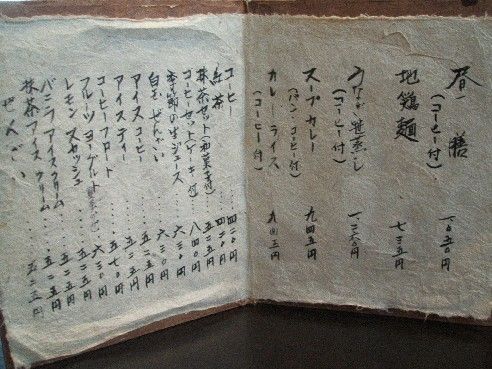 昼一膳
(コーヒー付)
一〇五〇円
地鶏麺
七三五円
うなぎ笹蒸し
(コーヒー付)
スープカレー
(パン・コーヒー付)
九四五円
カレーライス
(コーヒー付)
コーヒー……四二〇円
紅茶……四二〇円
抹茶セット(和菓子付)五二五円
コーヒーセット(ケーキ付)八四〇円
季節の生ジュース…六三〇円
白玉ぜんざい……六三〇円
アイスコーヒー……五二五円
アイスティー……五二五円
コーヒーフロート……五七〇円
フルーツヨーグルト 六三〇円
レモンスカッシュ……五二五円
バニラアイスクリーム……五二五円
抹茶アイスクリーム……五二五円